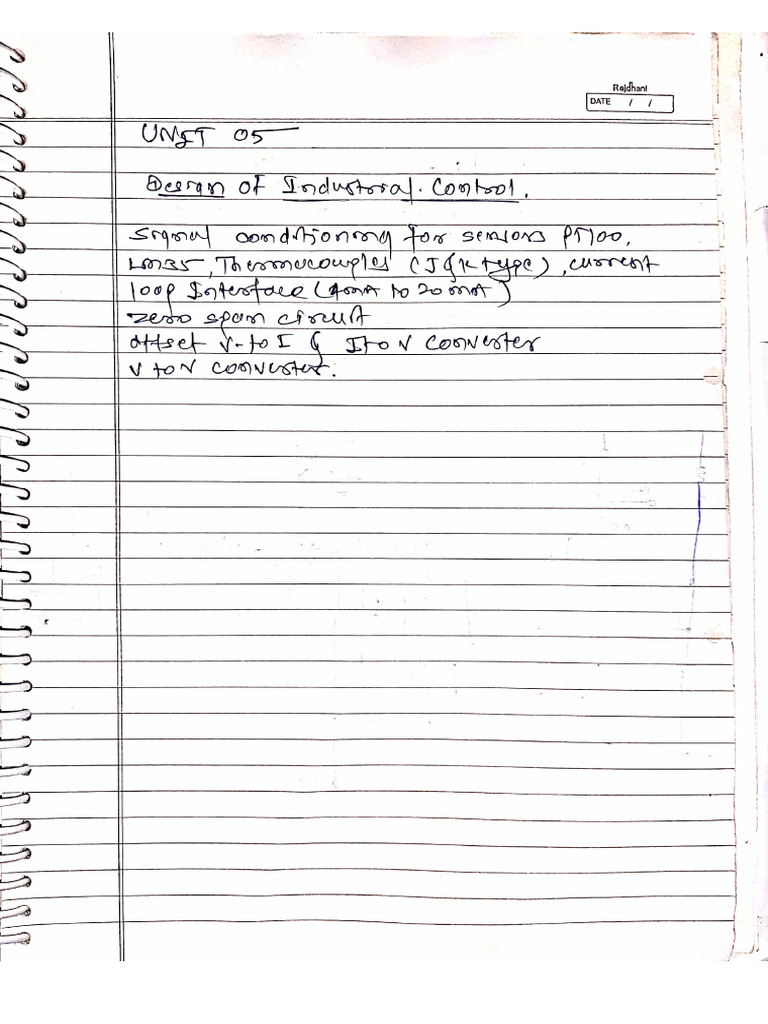 Rajdhani
DATE / /
UNIT 05
Design of Industrial Control.
Signal conditioning for sensors PT100,
LM35, Thermocouples (J & K type), current
loop Interface (4mA to 20mA)
zero span circuit
offset V-to I & I to V converter
V to V converter.